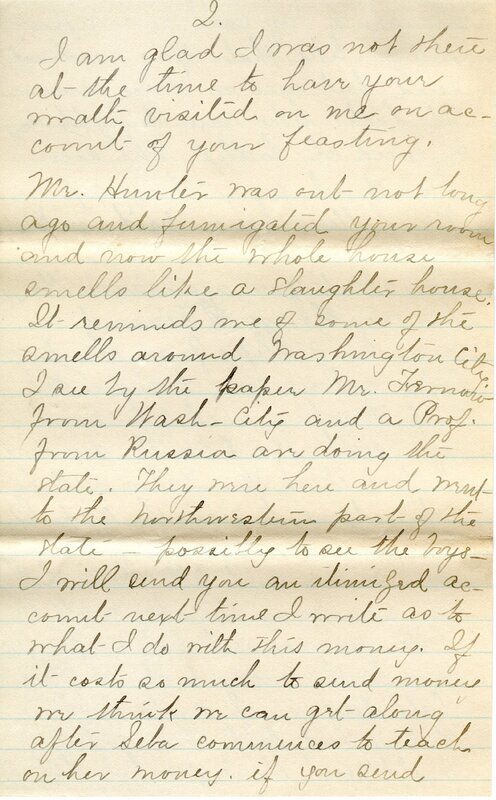 2.
I am glad I was not there
at the time to have your
wrath visited on me on ac-
count of your feasting.
Mr. Hunter was out not long
ago and fumigated your room
and now the whole house
smells like a slaughter house.
It reminds me of some of the
smells around Washington City.
I see by the paper Mr.
from Wash-City and a Prof.
from Russia are doing the
state. They were here and went
to the Northwestern part of the
state – possibly to see the boys–
I will send you an itimized ac-
count next time I write as to
what I do with this money. If
it costs so much to send money
we think we can get along
after Seba commences to teach
on her money. if you send